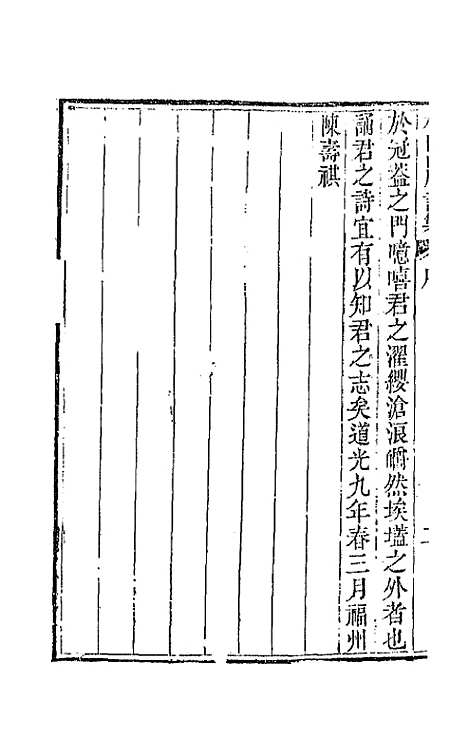 於冠葢之門噫嘻君之濯纓滄浪皭然埃壒之外者也
誦君之詩宜有以知君之志矣道光九年春三月福州
陳壽祺